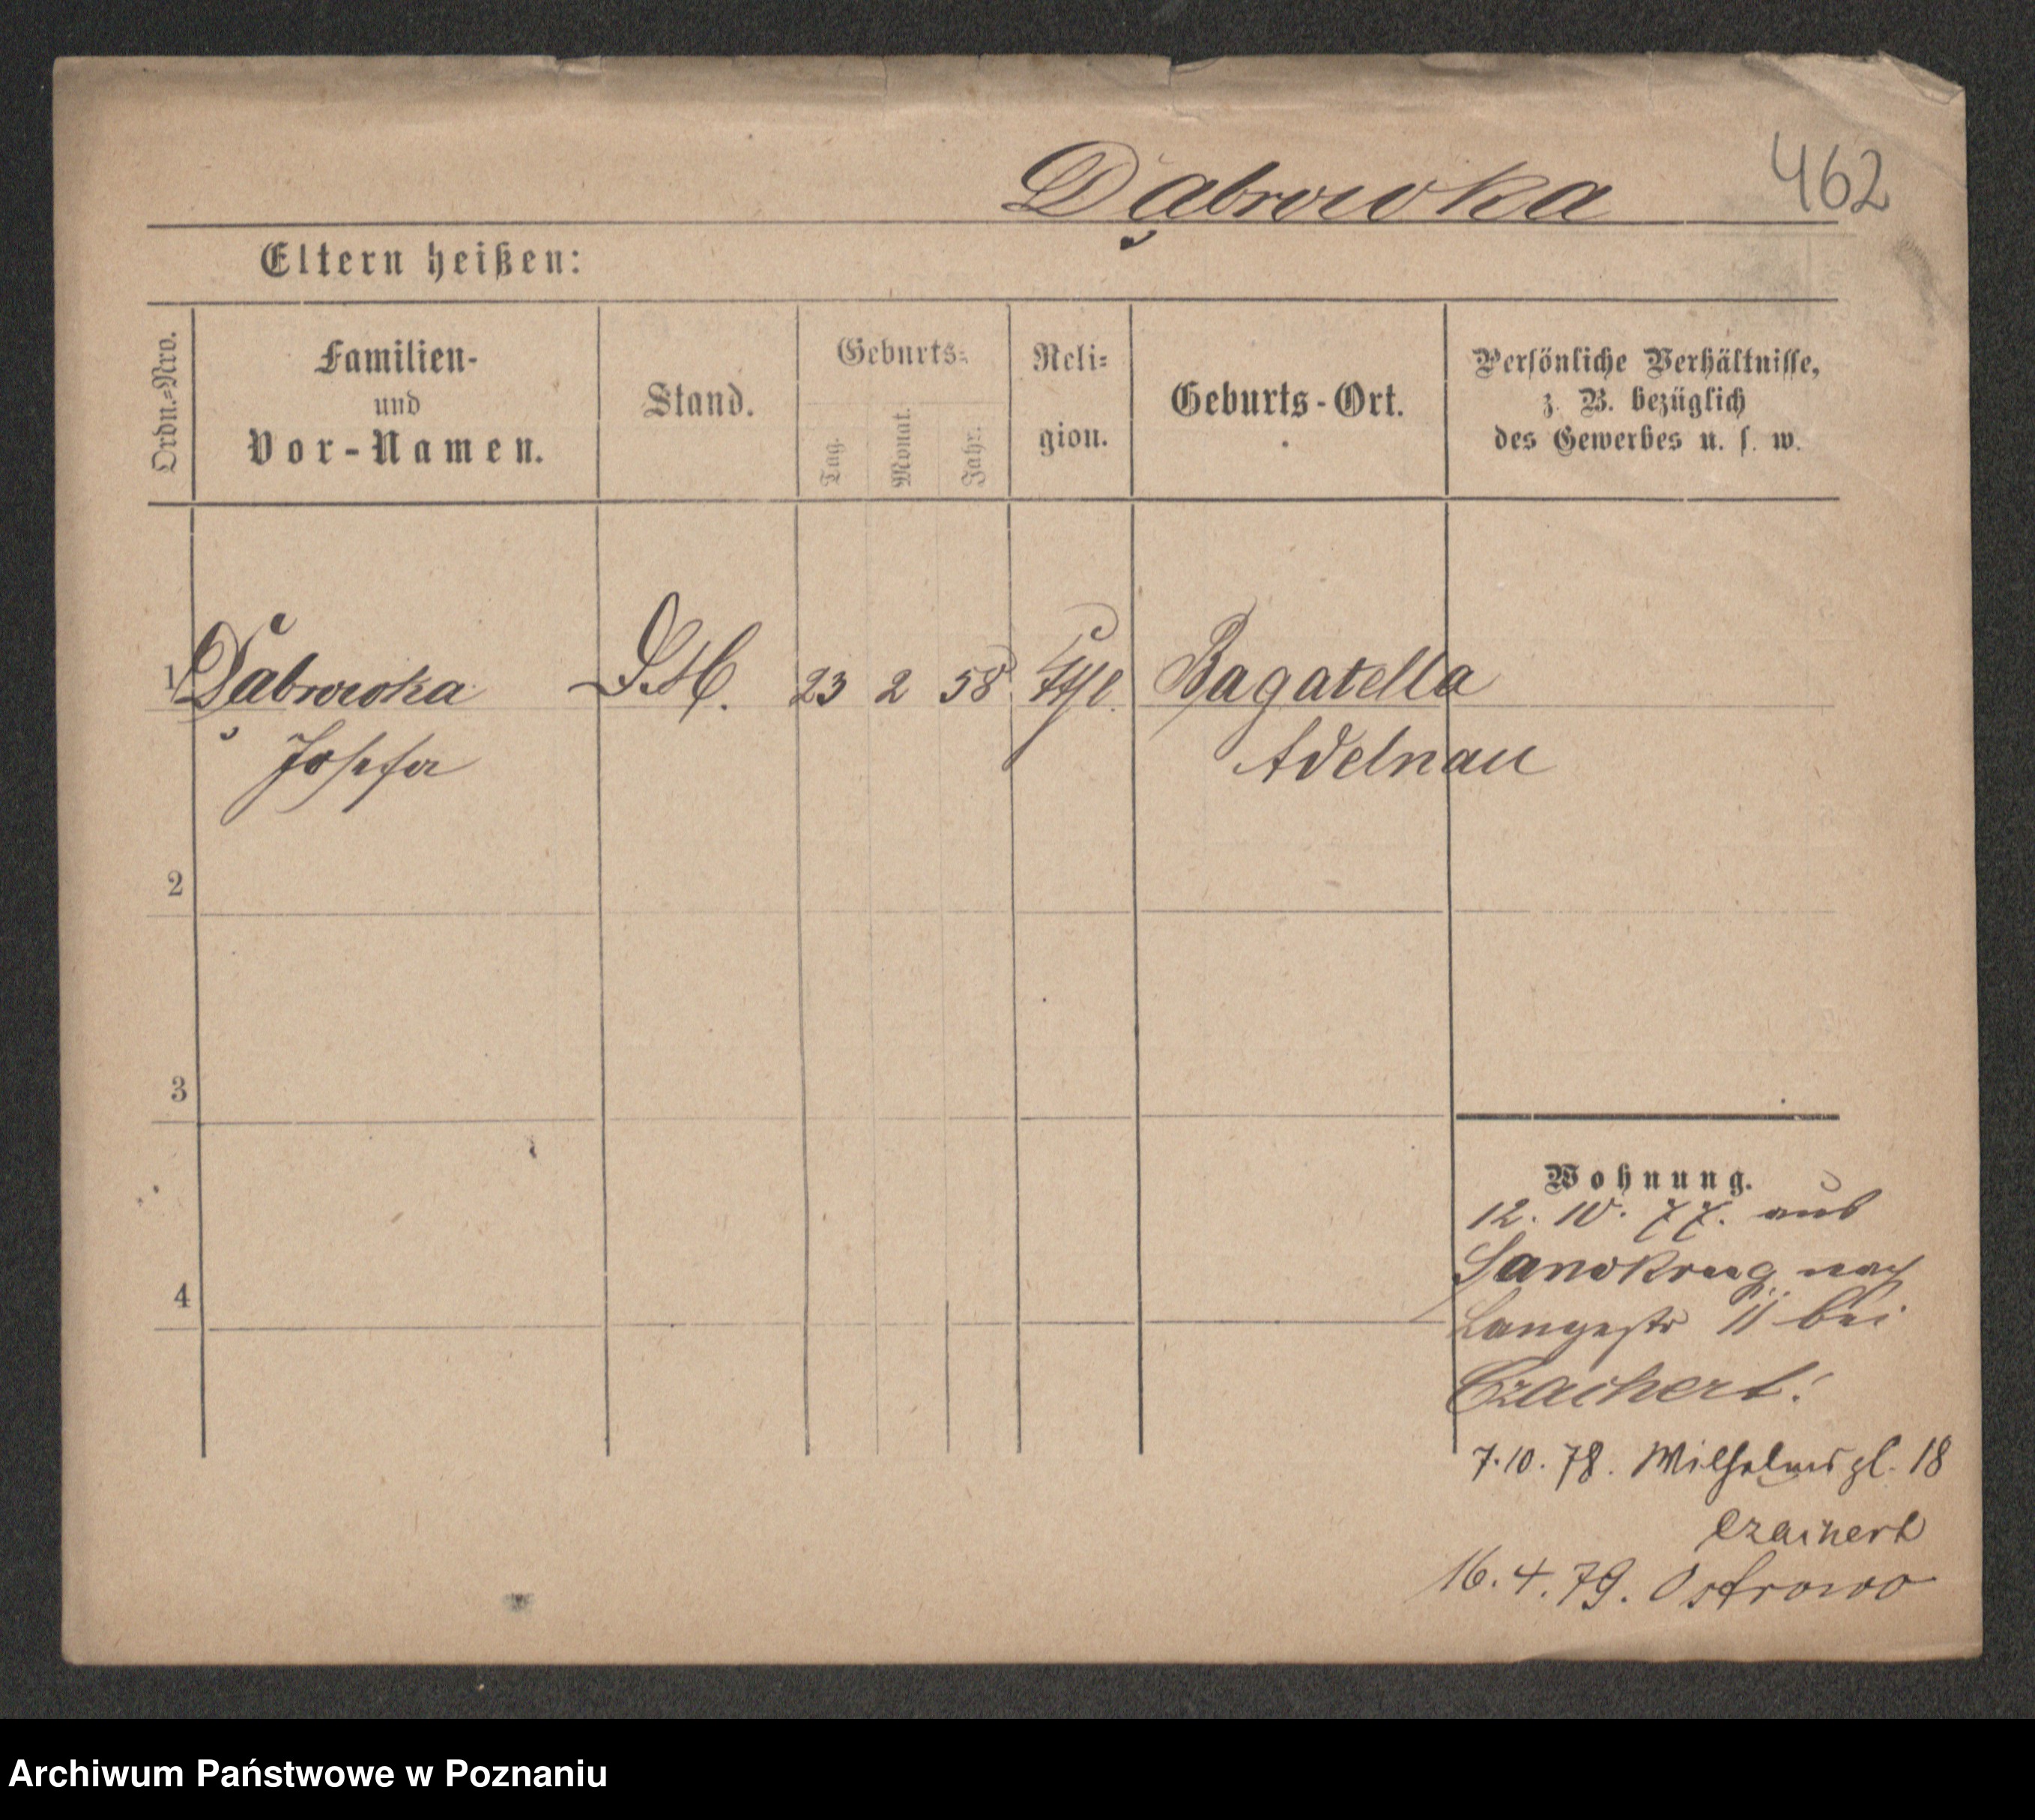 462
Dąbrowka
Eltern heißen:
Ordn.-Nro.
Familien-
und
Vor-Namen.
Stand.
Geburts-
Tag.
Monat.
Jahr.
Reli-
gion.
Geburts-Ort.
Persönliche Verhältnisse,
z. B. bezüglich
des Gewerbes u. s. w.
1 Dąbrowka 23 2 58 Bagatella
Josefa Adelnau
2
3
4
Wohnung.
12. 10. 77. aus
Sandkrug nach
Langestr 11 bei
Czaihert.
7. 10. 78. Wilhelmspl. 18
Czaihert
16. 4. 79. Ostrowo
Archiwum Państwowe w Poznaniu